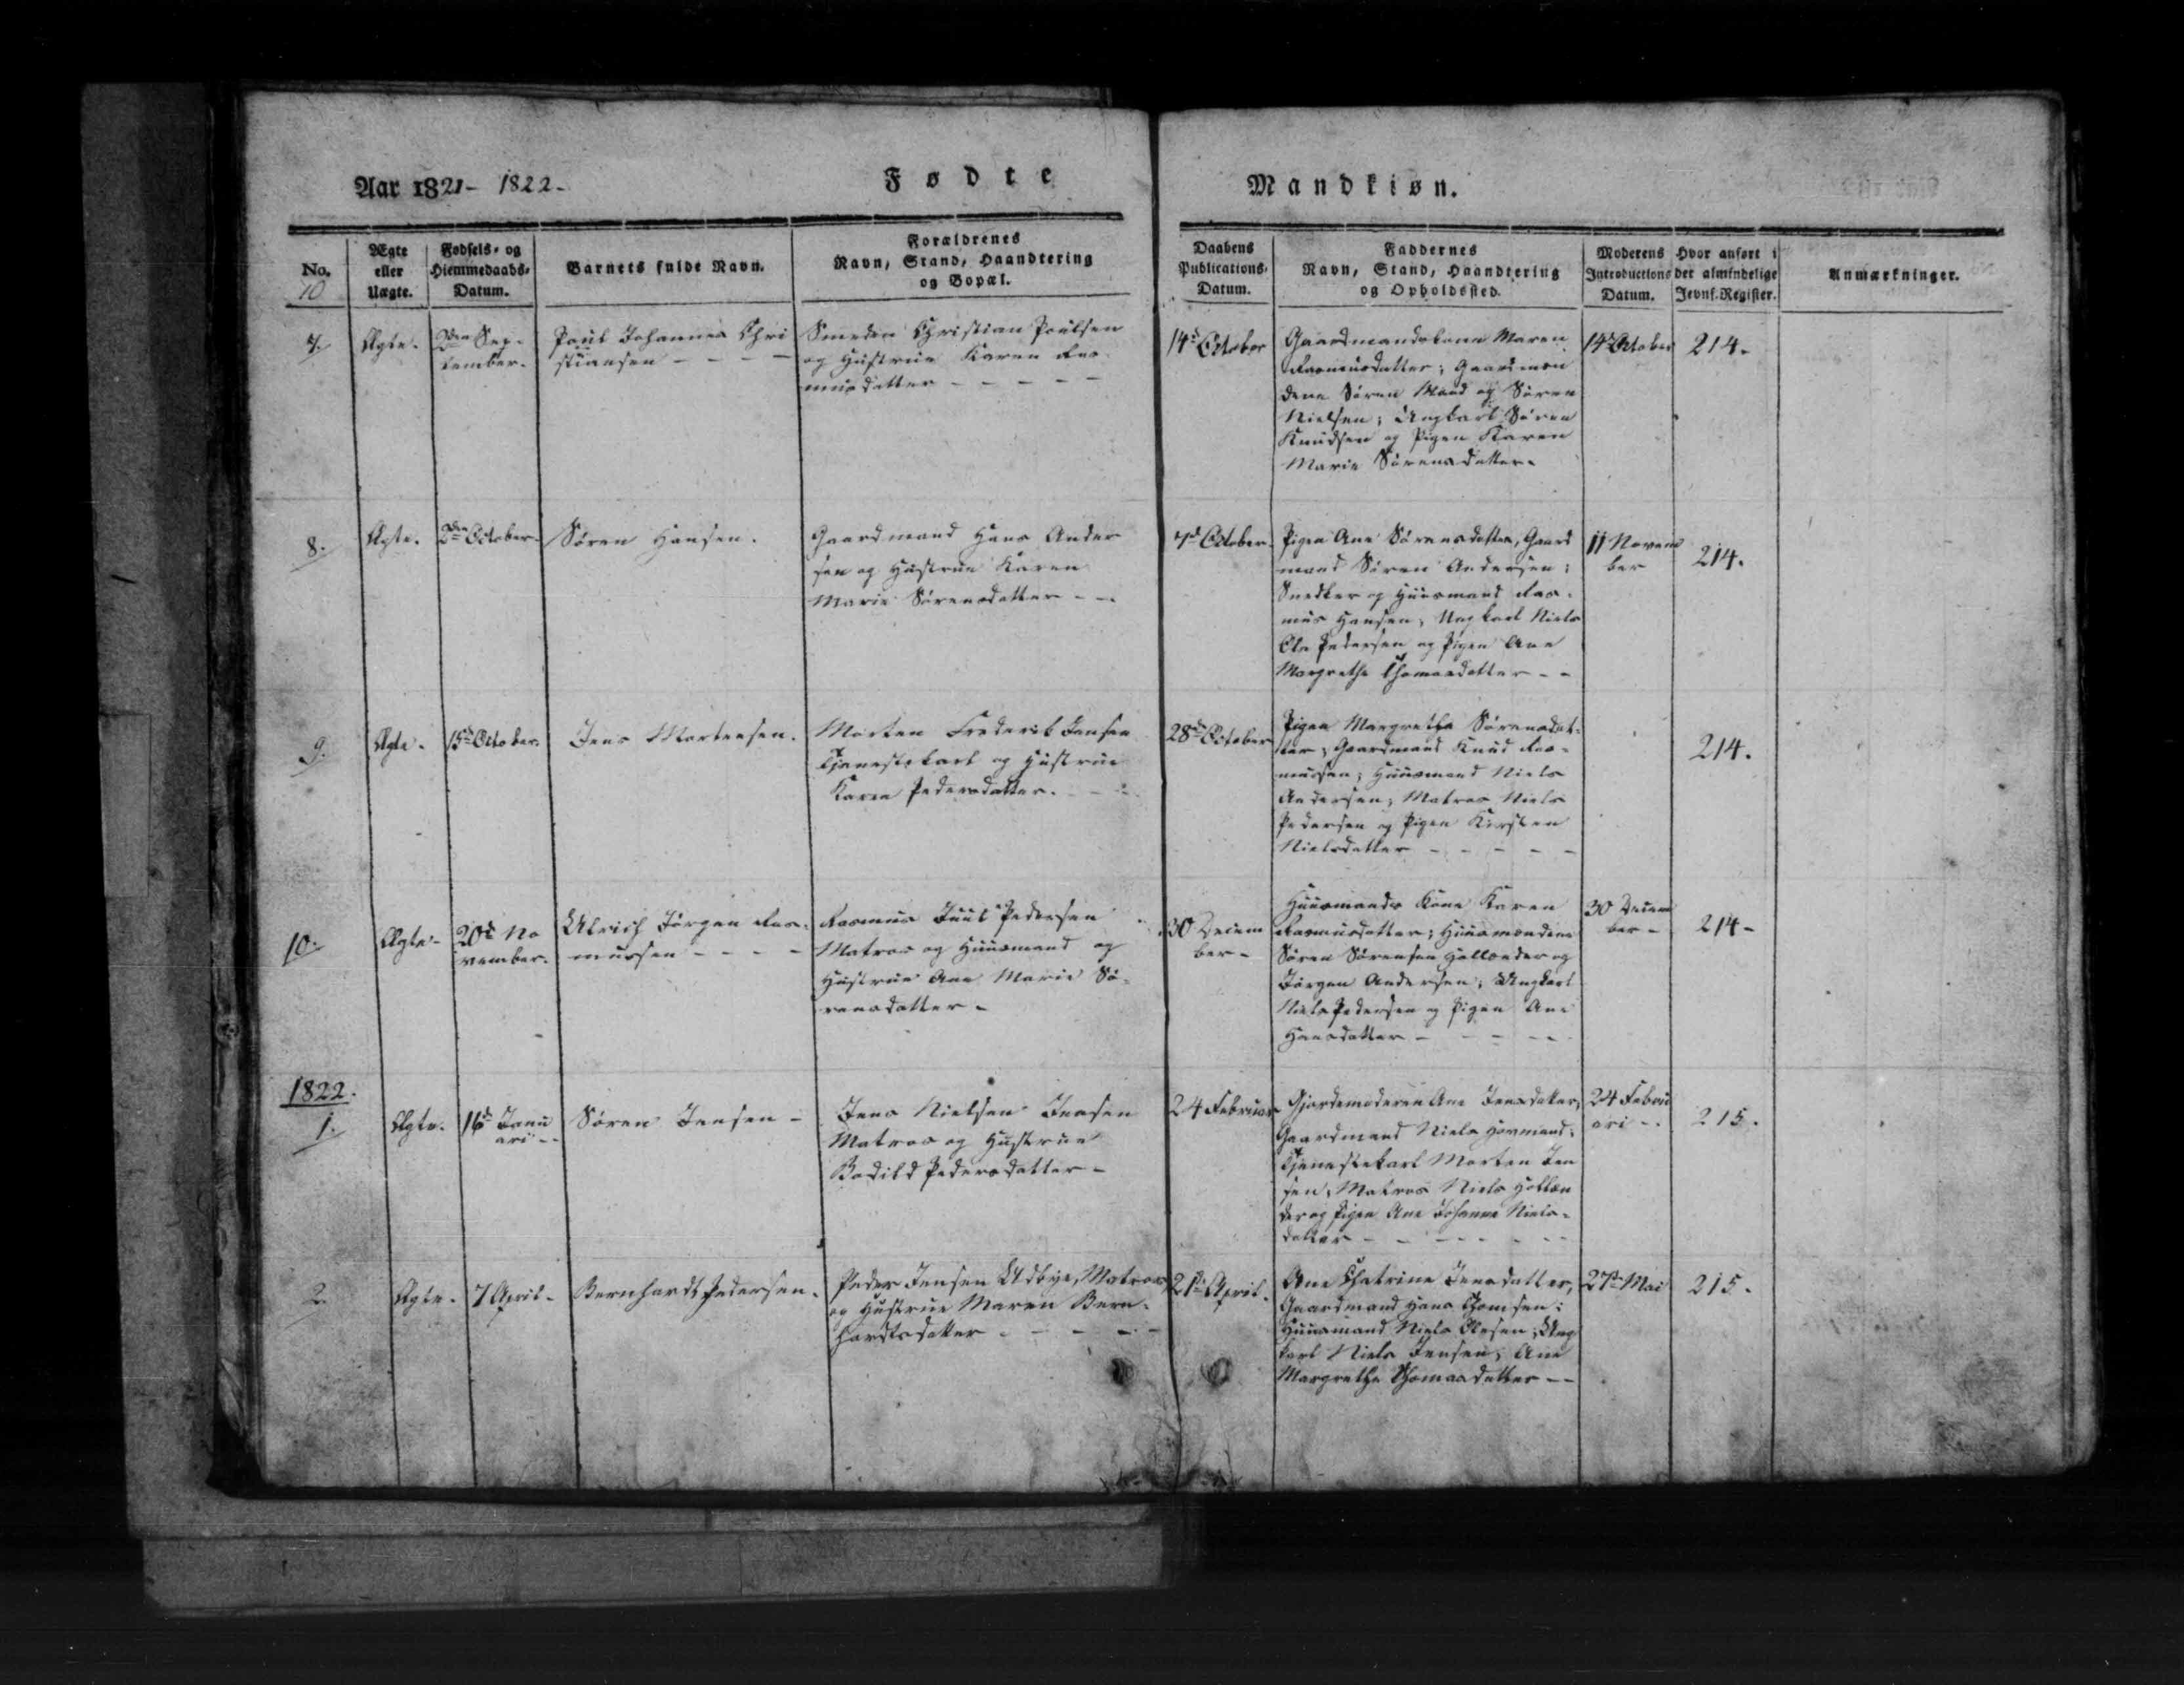 Aar 1821- 1822-
Fødte
Mandkiøn.
No.
10
Ægte
eller
Uægte.
Fødsels- og
Hiemmedaabs-
Datum.
Barnets fulde Navn.
Forældrenes
Navn, Stand, Haandtering
og Bopæl.
Daabens
Publications-
Datum.
Faddernes
Navn, Stand, Haandtering
og Opholdssted.
Moderens
Introductions
Datum.
Hvor anført i
det almindelige
Jevnf. Register.
Anmærkninger.
7.
Ægte.
Sep-
tember.
Poul Johannes Chri
stiansen - - - -
Smeden Christian Poulsen
og Hustrue Karen Ras-
musdatter - - - - -
14d October
Gaardmandskone Maren
Rasmusdatter; Gaardmæn
dene Søren Maad og Søren
Nielsen; Ungkarl Søren
Knudsen og Pigen Karen
Marie Sørensdatter.
14d October
214.
8.
Ægte.
2den October.
Søren Hansen.
Gaardmand Hans Ander
sen og Hustrue Karen
Marie Sørensdatter - -
7d October.
Pigen Ane Sørensdatter, Gaard
mand Søren Andersen;
Snedker og Huusmand Ras-
mus Hansen, Ungkarl Niels
Ole Pedersen og Pigen Ane
Margrethe Thomasdatter - -
11 Novem
ber
214.
9.
Ægte.
15d October.
Jens Mortensen.
Morten Frederik Jensen
Tjenestekarl og Hustrue
Karen Pedersdatter. - -
28d October
Pigen Margrethe Sørensdat-
ter; Gaardmand Knud Ras-
mussen; Huusmand Niels
Andersen; Matros Niels
Pedersen og Pigen Kirsten
Nielsdatter - - - - -
214.
10.
Ægte-
20d No
vember.
Ulrich Jørgen Ras-
mussen - - - -
Rasmus Juul Pedersen
Matros og Huusmand og
Hustrue Ane Marie Sø-
rensdatter -
30 Decem
ber -
Huusmands Kone Karen
Rasmusdatter; Huusmændene
Søren Sørensen Hollænder og
Jørgen Andersen; Ungkarl
Niels Pedersen og Pigen Ane
Hansdatter - - - - -
30 Decem
ber -
214-
1822.
1.
Ægte.
16d Janu
ari - -
Søren Jensen -
Jens Nielsen Jensen
Matros og Hustrue
Bodild Pedersdatter -
24 Februar
Gjordemoderen Ane Jensdatter,
Gaardmand Niels Hovmand;
Tjenestekarl Morten Jen
sen; Matros Niels Hollæn
der og Pigen Ane Johanne Niels-
datter - - - - - -
24 Febru
ari - .
215.
2.
Ægte.
7 April-
Bernhardt Pedersen.
Peder Jensen Udbye, Matros
og Hustrue Maren Bern-
hardtsdatter - - - -
21de April.
Ane Chatrine Jensdatter,
Gaardmand Hans Thomsen;
Huusmand Niels Olesen; Ung
karl Niels Jensen; Ane
Margrethe Thomasdatter - -
27de Mai
215.